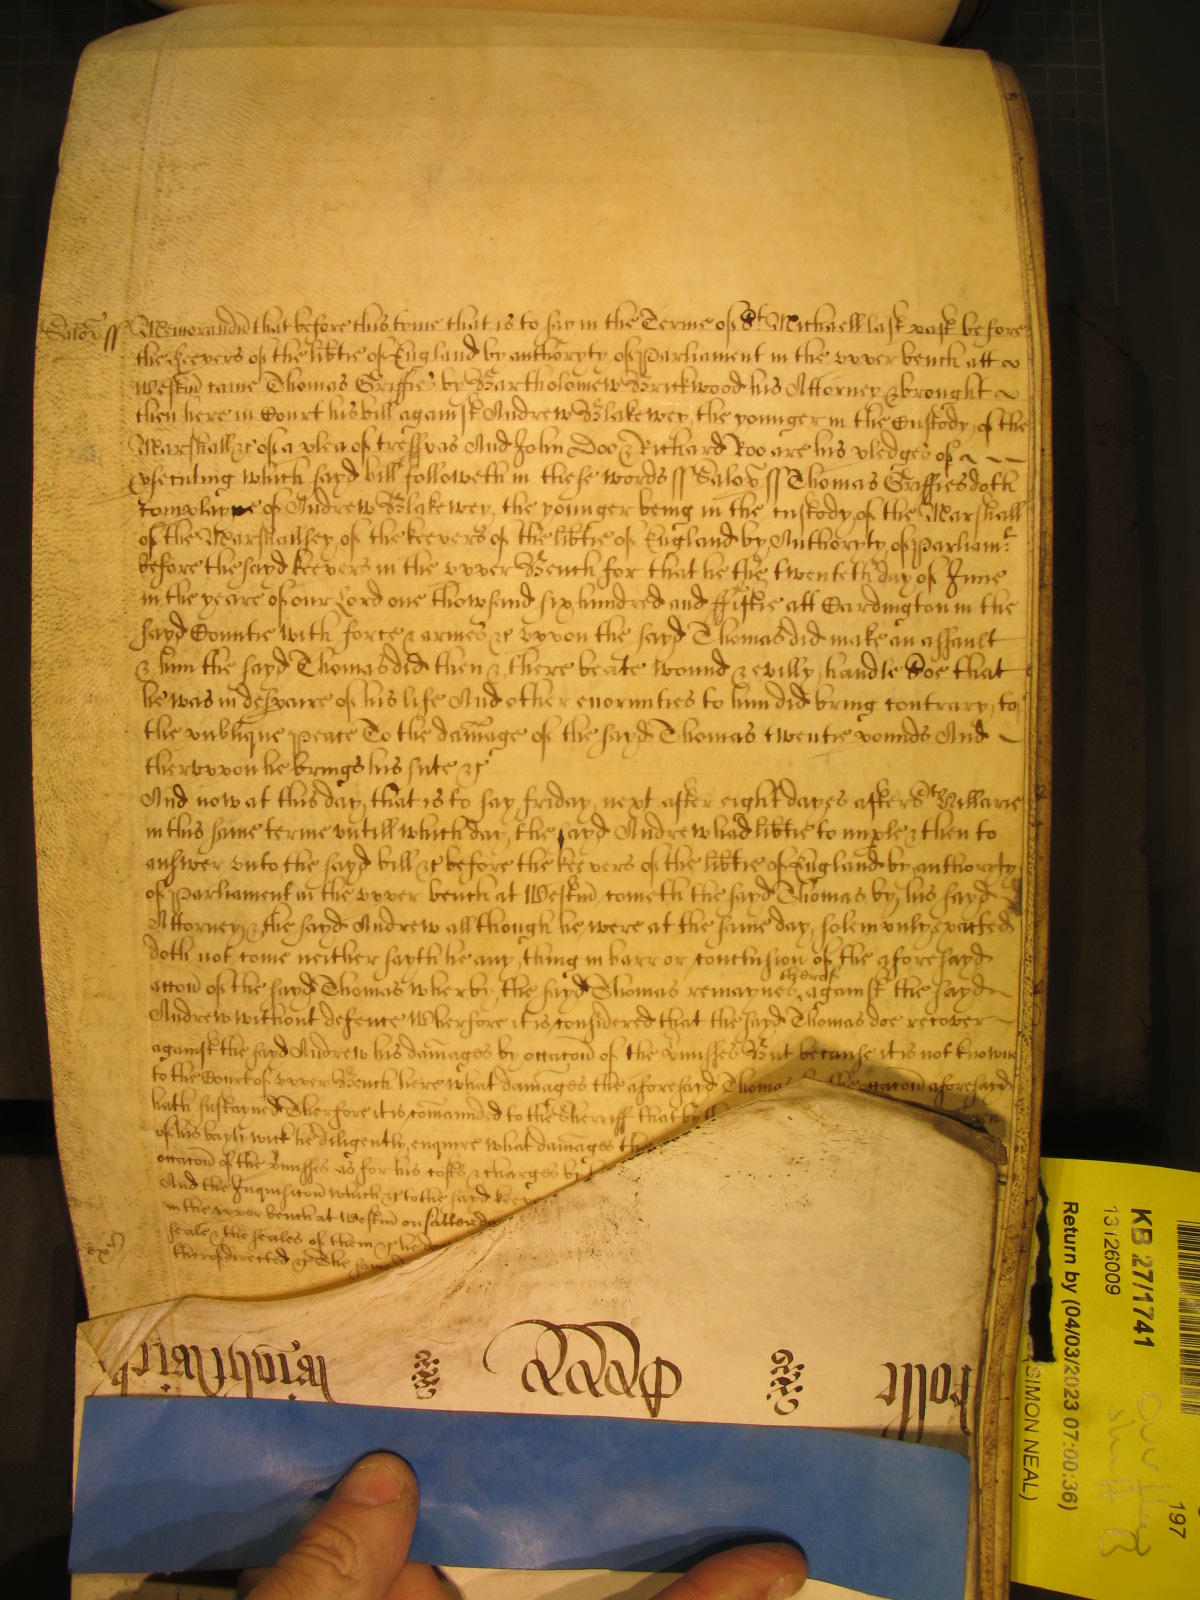 Salop ss Memorandu that before this tyme that is to say in the Terme of St Michaell last past before
the keepers of the libtie of England by authoryty of Parliament in the upper bench att
Westm came Thomas Griffies by Bartholomew Brickwood his Attorney & brought
then here in Court his bill against Andrew Blakewey the younger in the Custody of the
Marshall &c of a plea of trespas And John Doo & Richard Roo are his pledges of
psecuting which sayd bill followeth in these words ss Salop ss Thomas Griffies doth
complayne of Andrew Blakewey the younger being in the custody of the Marshall
of the Marshalsey of the keepers of the libtie of England by Authoryty of Parliamt
before the sayd keepers in the upper Bench for that he the twenteth day of June
in the yeare of our Lord one thowsand six hundred and fiftie att Cardington in the
sayd Countie with force & armes &c uppon the sayd Thomas did make an assault
& him the sayd Thomas did then & there beate wound & evilly handle Soe that
he was in despaire of his life And other enormities to him did bring contrary to
the publique peace To the damage of the sayd Thomas twentie pounds And
theruppon he brings his sute &c
And now at this day that is to say friday next after eight dayes after St Hillarie
in this same terme untill which day the sayd Andrew had libtie to imple & then to
answer unto the sayd bill &c before the keepers of the libtie of England by authoryty
of Parliament in the upper bench at Westm cometh the sayd Thomas by his sayd
Attorney & the sayd Andrew allthough he were at the same day solemnly exacted
doth not come neither sayth he any thing in barr or conclusion of the aforesayd
accon of the sayd Thomas wherby the sayd Thomas remaynes therof against the sayd
Andrew without defence Wherfore it is considered that the sayd Thomas doe recover
against the sayd Andrew his damages by occacon of the pmisses But because it is not knowne
to the Court of upper Bench here what damages the aforesayd Thomas occacon aforesayd
hath sustayned Therfore it is comanded to the Sherriff that by
of his bayliwick he diligently enquire what damages the
occacon of the pmisses as for his costs & charges by
And the Inquisicon which &c to the sayd keepers
in the upper bench at Westm on
seale & the seales of them &c he
therof directed &c The same
Rolle
KB 27/1741
13126009
Return by (04/03/2023 07:00:36)
(SIMON NEAL)
197